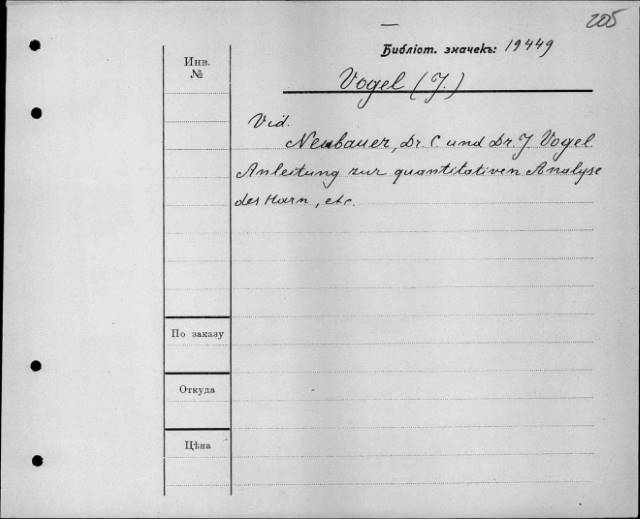 205
Библіот. значекъ: 19449
Инв.
№
Vogel (J.)
Vid.
Neubauer, Dr. C. und Dr. J. Vogel
Anleitung zur quantitativen Analyse
des Harn, etc.
По заказу
Откуда
Цѣна